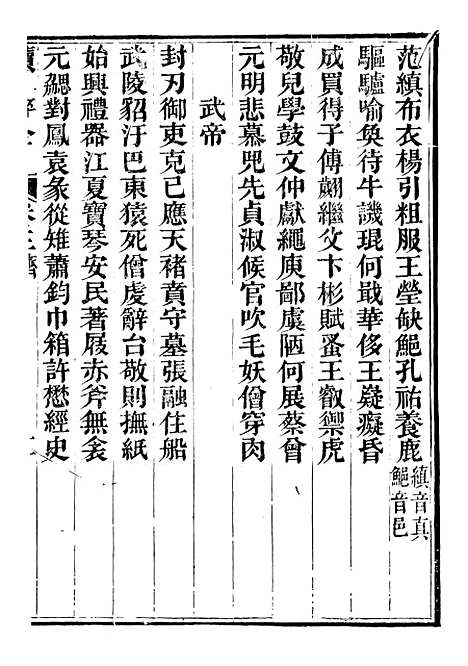 范縝布衣楊引粗服王瑩缺鮑孔祐養鹿縝音真鮑音邑
驅驢喻奐待牛譏琨何戢華侈王嶷癡昏
成買得子傅翽繼父卞彬賦蚤王叡禦虎
敬兒學鼓文仲獻繩庾鄙虞陋何展蔡曾
元明悲慕兕先貞淑候官吹毛妖僧穿肉
武帝
封刃御吏克己應天褚賁守墓張融住船
武陵貂汙巴東猿死僧虔辭台敬則撫紙
始興禮器江夏寶琴安民著屐赤斧無衾
元勰對鳳袁彖從雉蕭鈞巾箱許懋經史